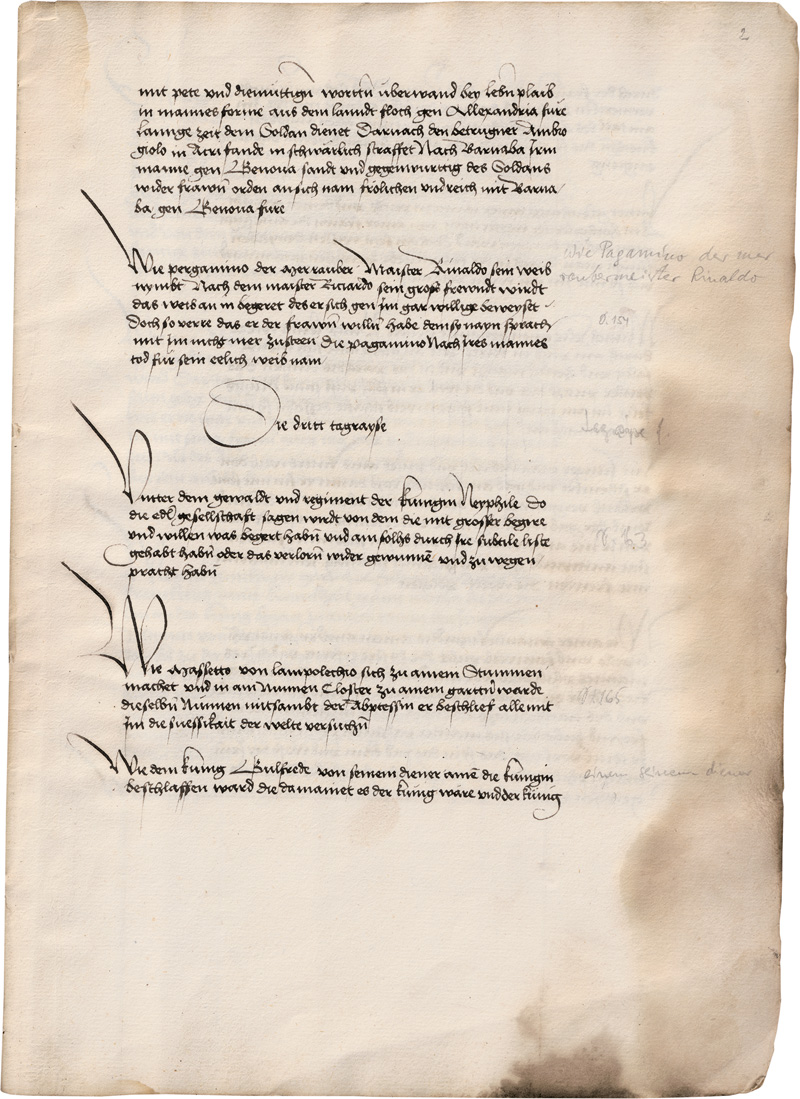 2
mit pete vnd diemüttigñ worttñ überwand bey lebñ plaib
in mannes forme aus dem lanndt floch gen Allexandria fure
lannge zeit dem Soldan dienet Darnach den betrugner Ambro
giolo in Acri fande in schwärlich straffet Nach Barnaba Irm
manne gen Genoua sandt vnd gegenwurttig des Soldans
wider frawñ orden an sich nam frölichen vnd reich mit Barna
ba gen Genoua fure
Wie pergamino der Merrauber Maister Rinaldo sein weib
nymbt Nach dem maister Riciardo sein groß frewndt wirdt
das weib an in begeret des er sich gen Im gar willige beweyset
Doch so verre das er der frawñ willñ habe dem sy nayn sprach
mit Im nicht mer zusteen Die pagamino Nach Ires mannes
tod für sein eelich weib nam
wie Pagamino der mer
rauber meister Rinaldo
D. 154
Die dritt tagrayse
Vnter dem gewaldt vnd regiment der künigin Neyphile Do
die edl gesellschaft sagen wirdt von dem die mit grosser begire
vnd willen was begert habñ vnd am solhs durch Ire subtile liste
gehabt habñ oder das verlorñ wider gewunnē vnd zu wegen
pracht habñ
Wie Massetto von lampolechio sich zu ainem Stummen
machet vnd in am Nunnen Closter zu ainem garttñ warde
dieselbñ Nunnen mitsambt der Abptessin er beschlief alle mit
Im die suessikait der welte versuchñ
D 165
Wie dem künig Gulfrede von seinem diener ainē die künigin
beschlaffen ward die da mainet es der künig wäre vnd der künig
einem seinem diener